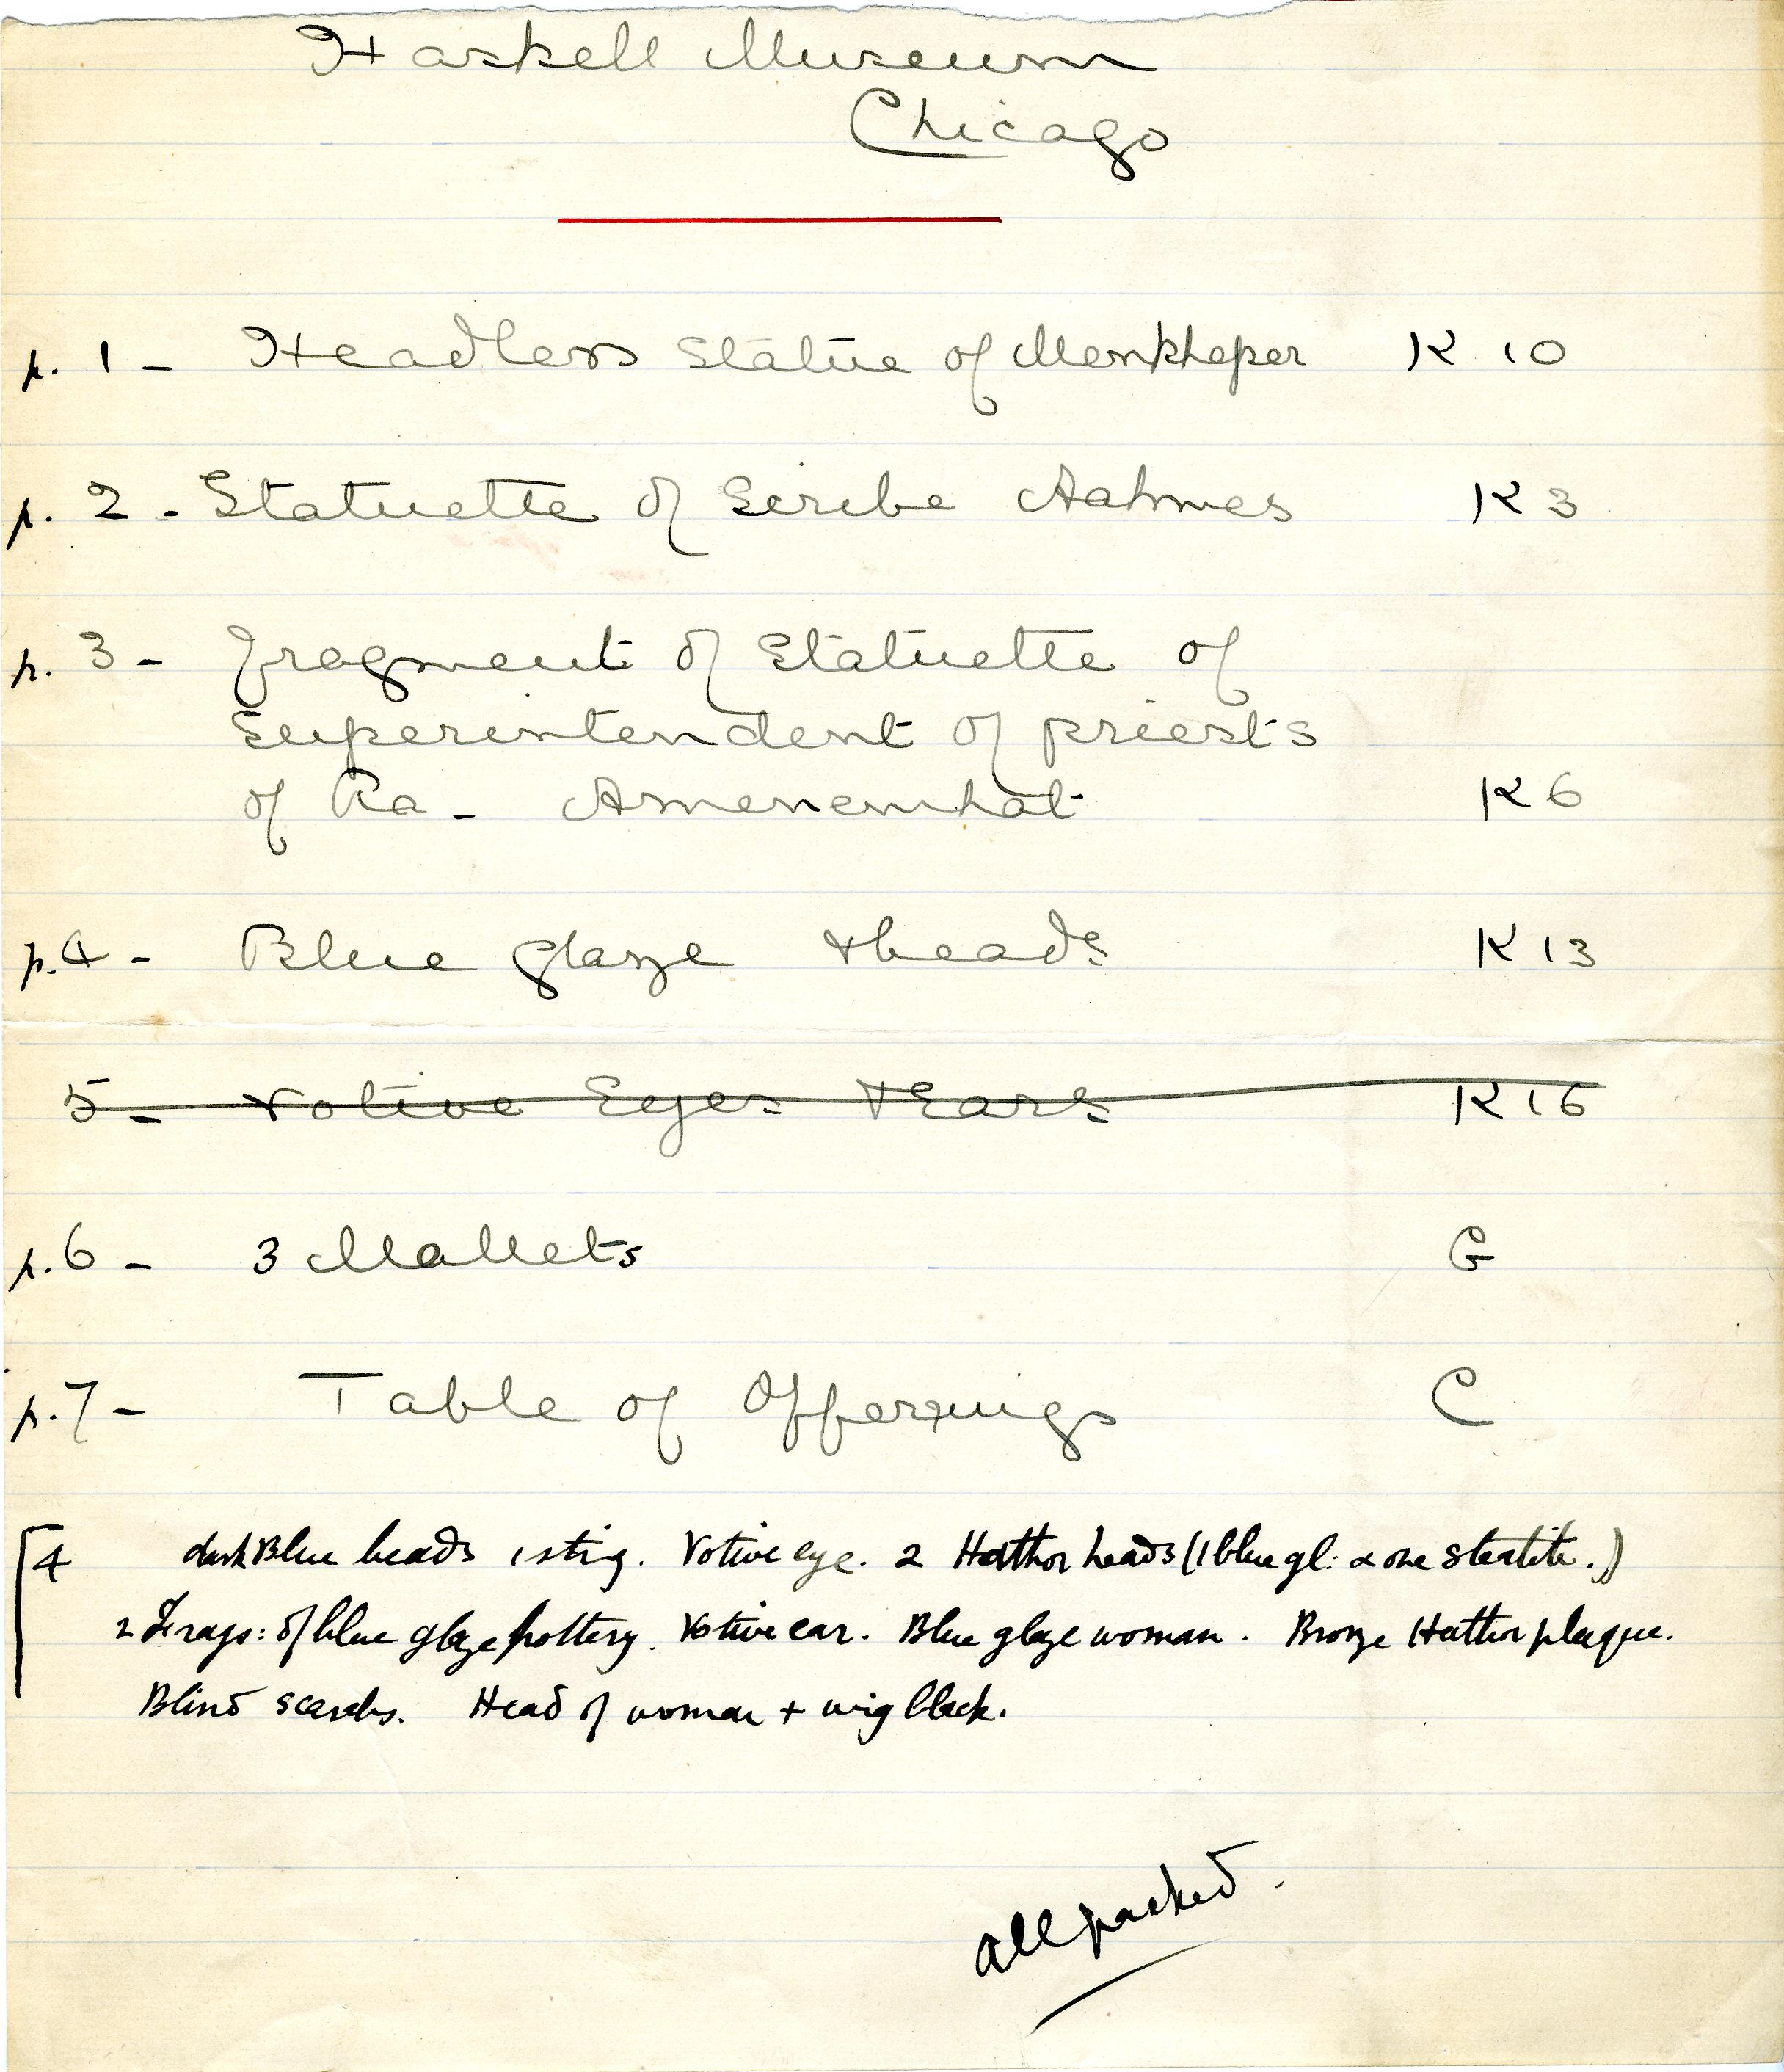 Haskell Museum
Chicago
p. 1 - Headless Statue of Menkheper K 10
p. 2 - Statuette of Scribe Aahmes K 3
p. 3 - Fragment of Statuette of
Superintendent of priests
of Ra - Amenemhat K 6
p. 4 - Blue glaze & beads K 13
5 - Votive Eyes & Ears K 16
p. 6 - 3 Mallets G
p. 7 - Table of Offerings C
[4 dark Blue beads 1 string. Votive eye. 2 Hathor heads (1 blue gl: & one steatite.)
2 Frags: of blue glaze pottery. Votive ear. Blue glaze woman. Bronze Hathor plaque.
Blind scarabs. Head of woman + wig black.
All packed.